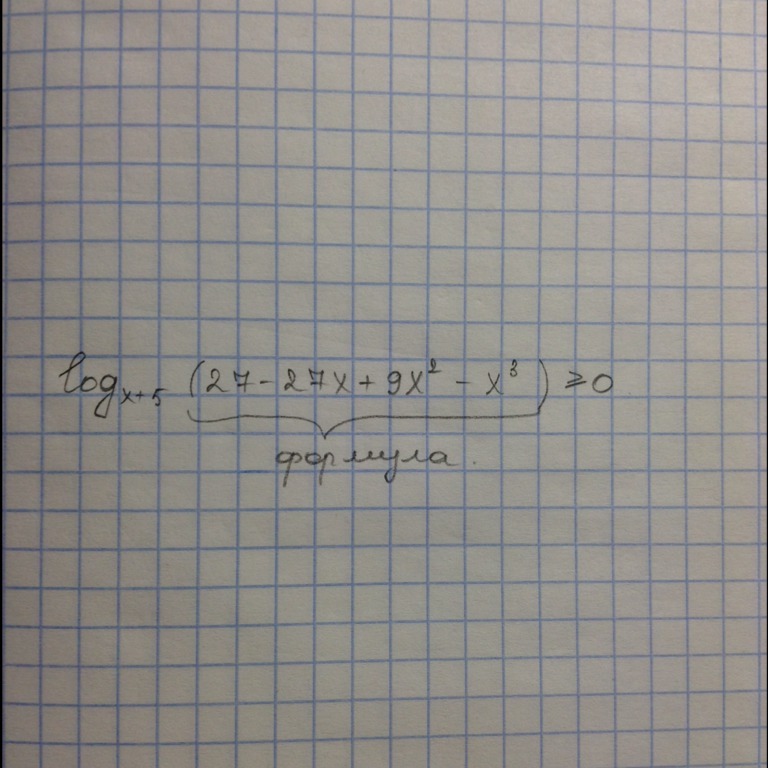 log_{x+5} (27-27x+9x² - x³) ⩾0
формула.